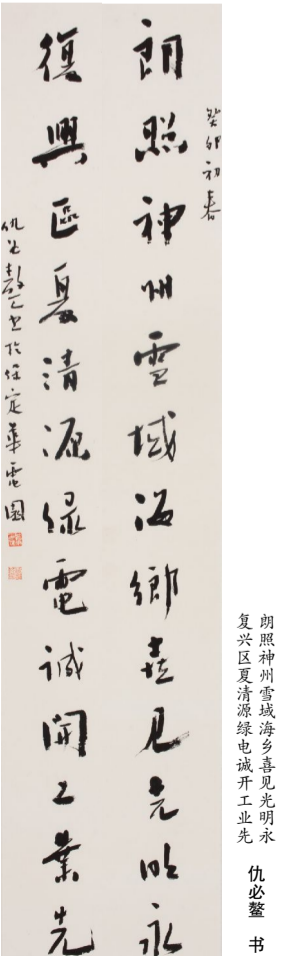 癸卯初春
朗照神州雪域海鄉喜見光明永
復興區夏清源绿電誠開工業先
仇必鳌书於保定華電園
朗照神州雪域海乡喜见光明永
复兴区夏清源绿电诚开工业先
仇必鳌 书